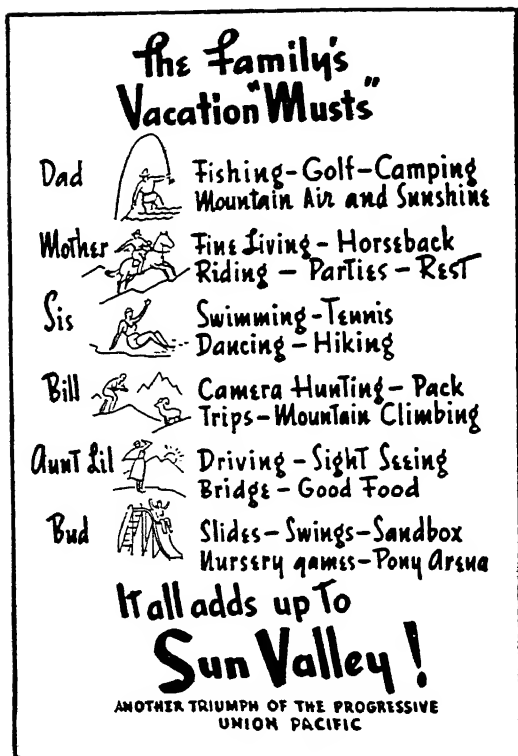 The Family's
Vacation "Musts"
Dad Fishing-Golf-Camping
Mountain Air and Sunshine
Mother Fine Living - Horseback
Riding - Parties - Rest
Sis Swimming-Tennis
Dancing - Hiking
Bill Camera Hunting - Pack
Trips-Mountain Climbing
Aunt Lil Driving - Sight Seeing
Bridge - Good Food
Bud Slides-Swings-Sandbox
Nursery games-Pony Arena
It all adds up To
Sun Valley!
ANOTHER TRIUMPH OF THE PROGRESSIVE
UNION PACIFIC